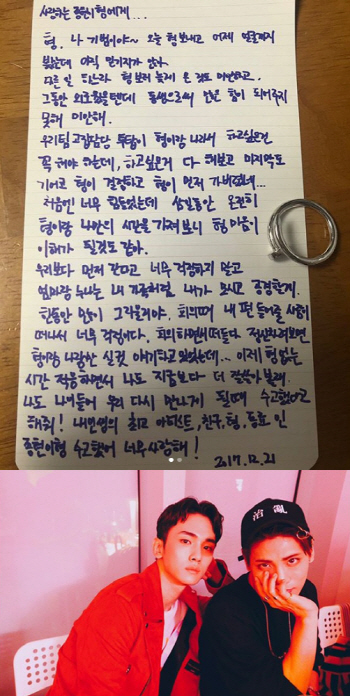 사랑하는 종현이형에게...
형, 나 기범이야~ 오늘 형 보내고 어제 얼굴까지
봤는데 아직 믿기지가 않아.
다른 일 하느라 형 보러 늦게 온 것도 미안하고,
그동안 외로웠을텐데 동생으로써 더 힘이 되어주지
못해 미안해.
우리팀 고집담당 투탑이 형이랑 나라서 하고싶은건
꼭 해야 하는데, 하고싶은거 다 해보고 마지막도
기어코 형이 결정하고 형이 먼저 가버렸네...
처음엔 너무 힘들었는데 삼일동안 온전히
형이랑 나만의 시간을 가져보니 형 마음이
이해가 될것도 같아.
우리보다 먼저 간다고 너무 걱정하지 말고
엄마랑 누나는 내 가족처럼 내가 모시고 공경할게.
한동안 많이 그리울거야. 회의때 내 편 들어줄 사람이
떠나서 너무 걱정이다. 회의하면서 떠들다 정신차려보면
형이랑 나랑만 실컷 얘기하고 있었는데... 이제 형 없는
시간 적응하면서 나도 지금보다 더 잘 살아볼게.
나도 나이들어 우리 다시 만나게 될때 수고했다고
해줘! 내 인생의 최고 아티스트, 친구, 형, 동료 인
종현이형 수고했어 너무 사랑해!
2017.12.21